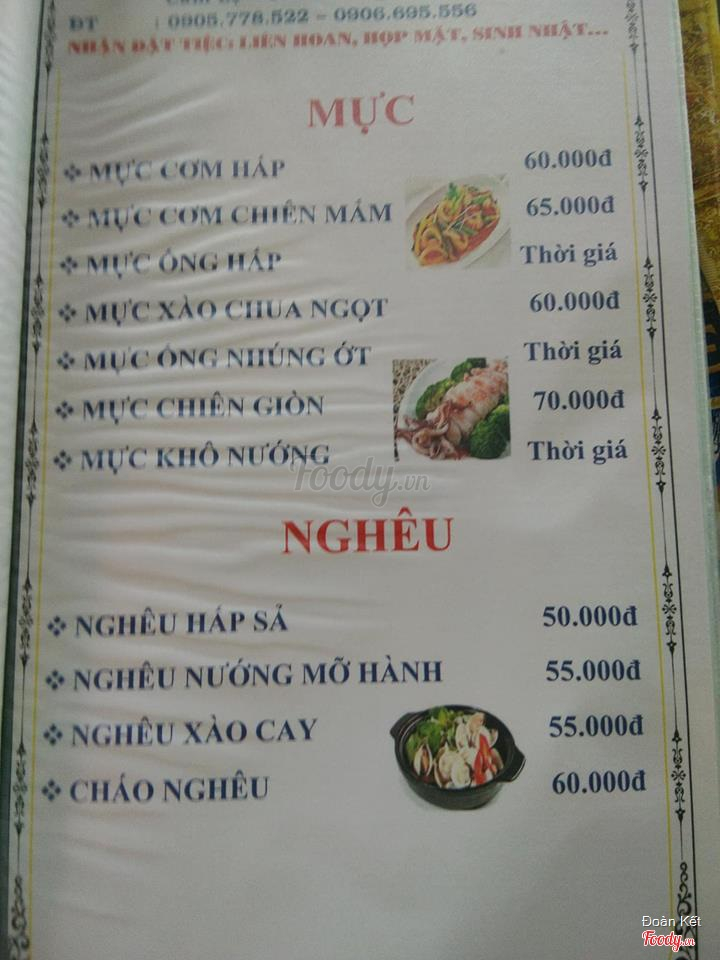 ĐT : 0905.778.522 – 0906.695.556
NHẬN ĐẶT TIỆC: LIÊN HOAN, HỌP MẶT, SINH NHẬT...
MỰC
❖ MỰC CƠM HẤP 60.000đ
❖ MỰC CƠM CHIÊN MẮM 65.000đ
❖ MỰC ỐNG HẤP Thời giá
❖ MỰC XÀO CHUA NGỌT 60.000đ
❖ MỰC ỐNG NHÚNG ỚT Thời giá
❖ MỰC CHIÊN GIÒN 70.000đ
❖ MỰC KHÔ NƯỚNG Thời giá
Foody.vn
NGHÊU
❖ NGHÊU HẤP SẢ 50.000đ
❖ NGHÊU NƯỚNG MỠ HÀNH 55.000đ
❖ NGHÊU XÀO CAY 55.000đ
❖ CHÁO NGHÊU 60.000đ
Đoàn Kết
Foody.vn